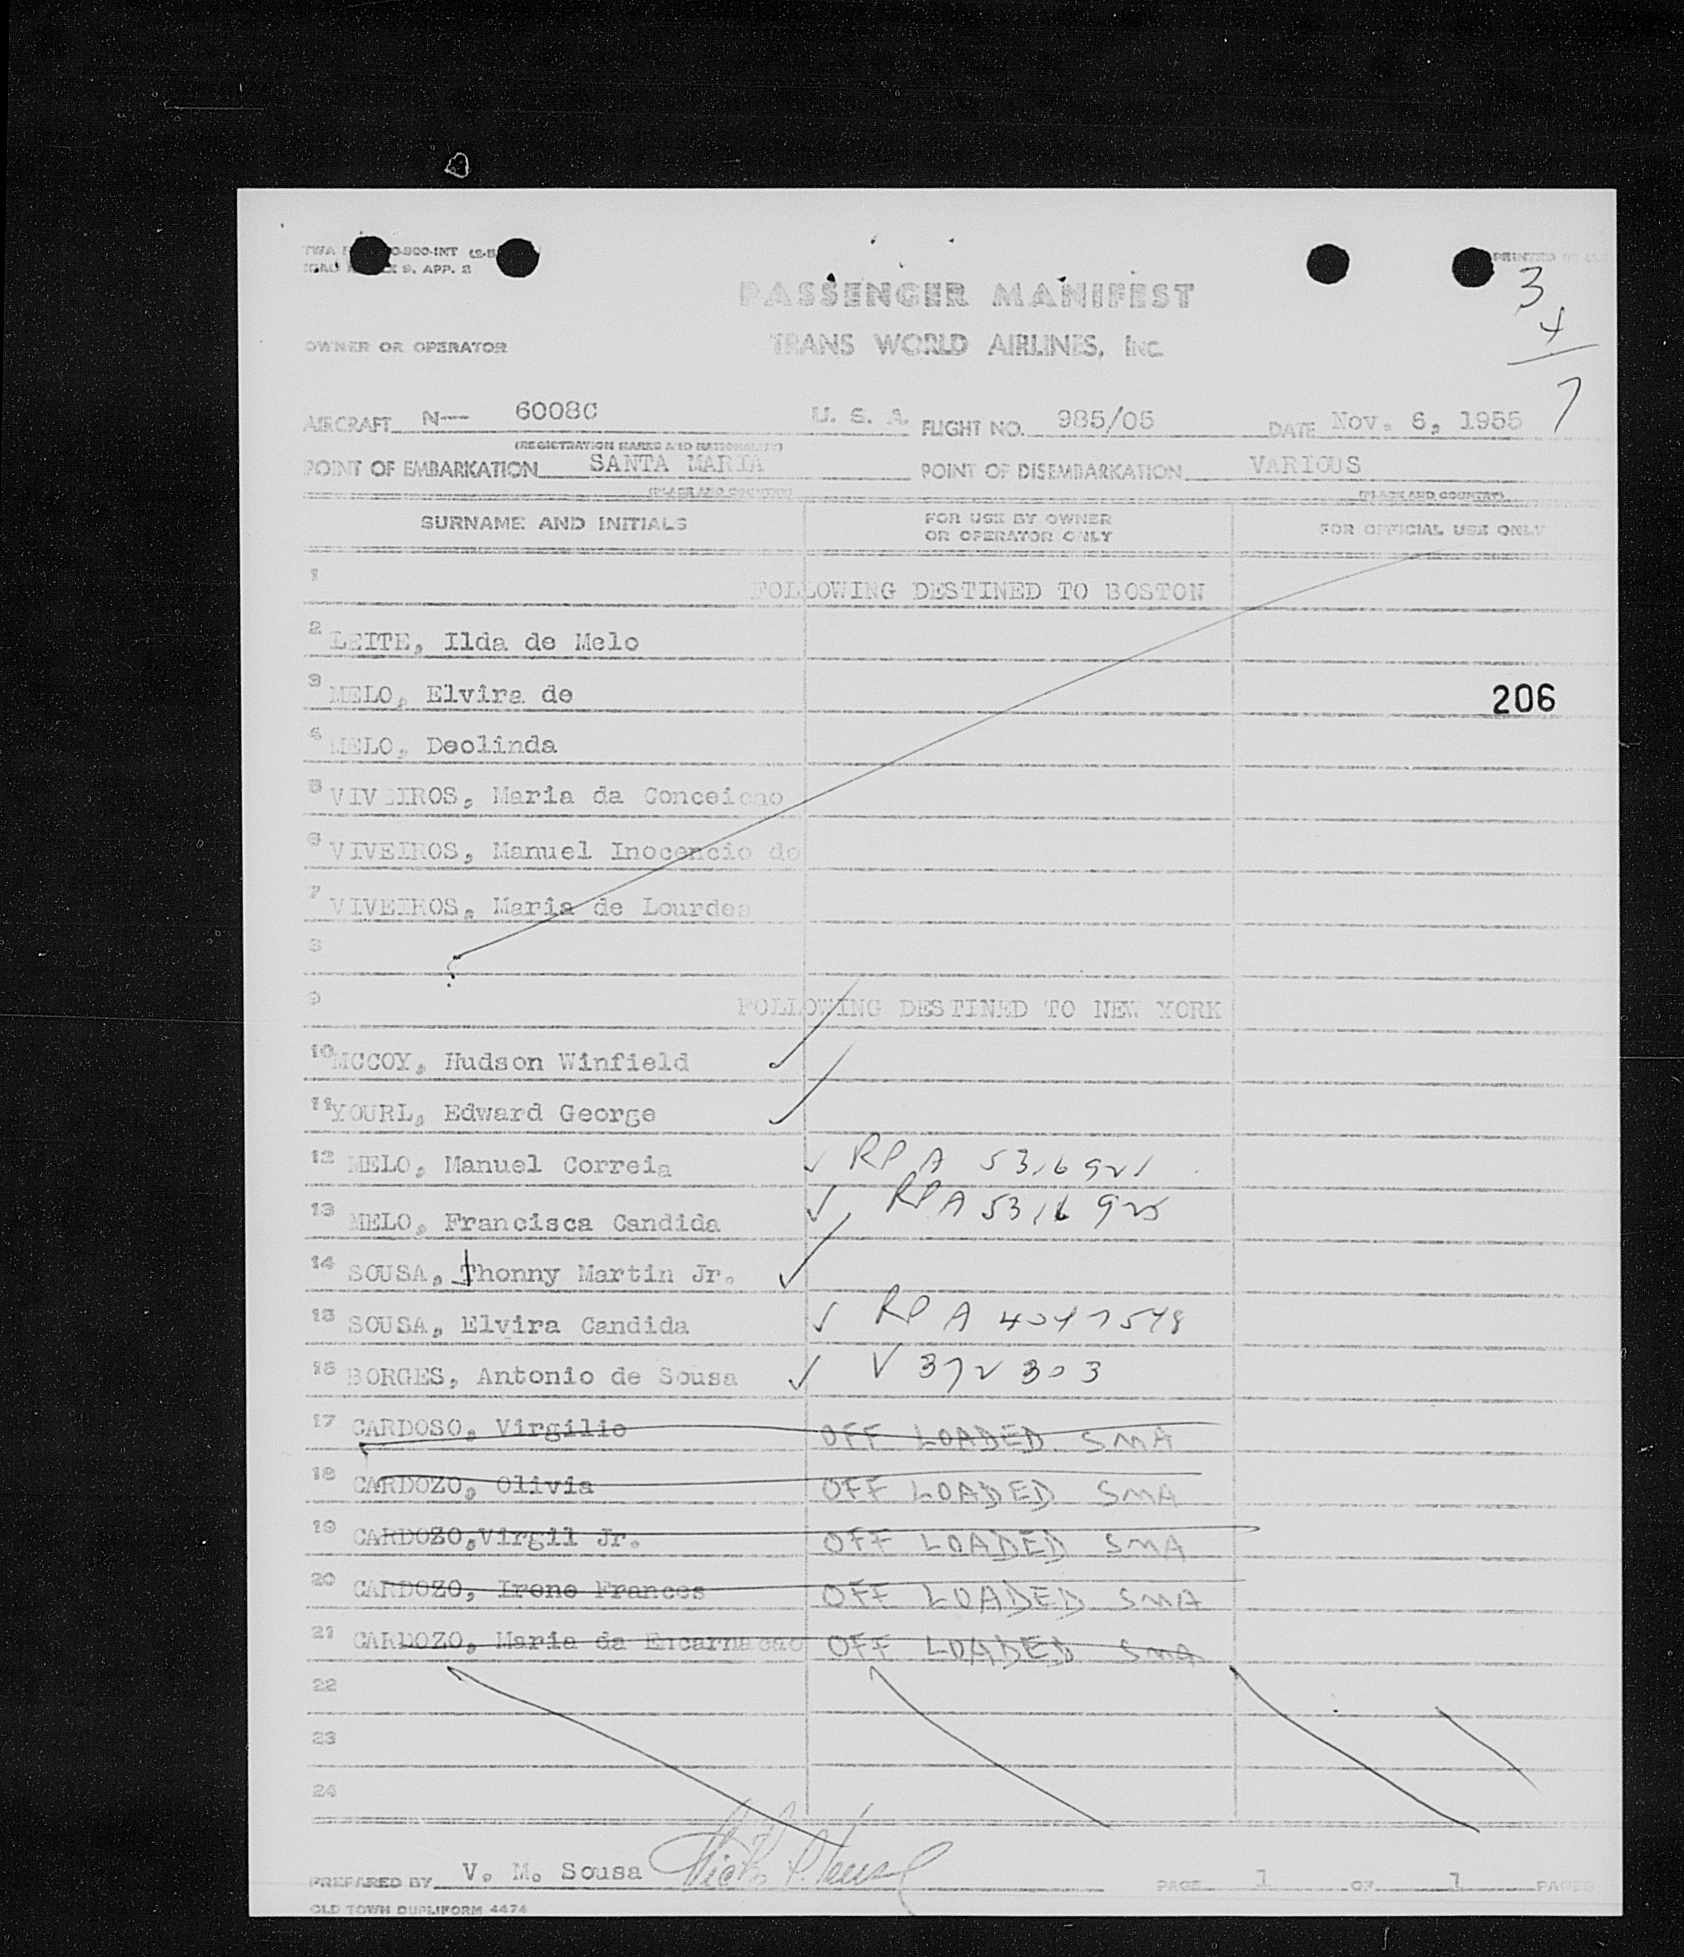 PRINTED
3
PASSENGER MANIFEST
4
OWNER OR OPERATOR TRANS WORLD AIRLINES, INC.
7
AIRCRAFT N-- 6008C U. S. A. FLIGHT NO. 985/05 DATE Nov. 6, 1955
(REGISTRATION MARKS AND NATIONALITY)
POINT OF EMBARKATION SANTA MARIA POINT OF DISEMBARKATION VARIOUS
(PLACE AND COUNTRY) (PLACE AND COUNTRY)
SURNAME AND INITIALS FOR USE BY OWNER OR OPERATOR ONLY FOR OFFICIAL USE ONLY
1 FOLLOWING DESTINED TO BOSTON
2 LEITE, Ilda de Melo
3 MELO, Elvira de 206
4 MELO, Deolinda
5 VIVEIROS, Maria da Conceicao
6 VIVEIROS, Manuel Inocencio do
7 VIVEIROS, Maria de Lourdes
8
9 FOLLOWING DESTINED TO NEW YORK
10 MCCOY, Hudson Winfield
11 YOURL, Edward George
12 MELO, Manuel Correia RP A 5316921
13 MELO, Francisca Candida RP A 5316925
14 SOUSA, Jhonny Martin Jr.
15 SOUSA, Elvira Candida RP A
16 BORGES, Antonio de Sousa V 372303
17 CARDOSO, Virgilio OFF LOADED SMA
18 CARDOZO, Olivia OFF LOADED SMA
19 CARDOZO,Virgil Jr. OFF LOADED SMA
20 CARDOZO, Irene Frances OFF LOADED SMA
21 CARDOZO, Maria da Encarnacao OFF LOADED SMA
22
23
24
PREPARED BY V. M. Sousa PAGE 1 OF 1 PAGES
OLD TOWN DUPLIFORM 4474